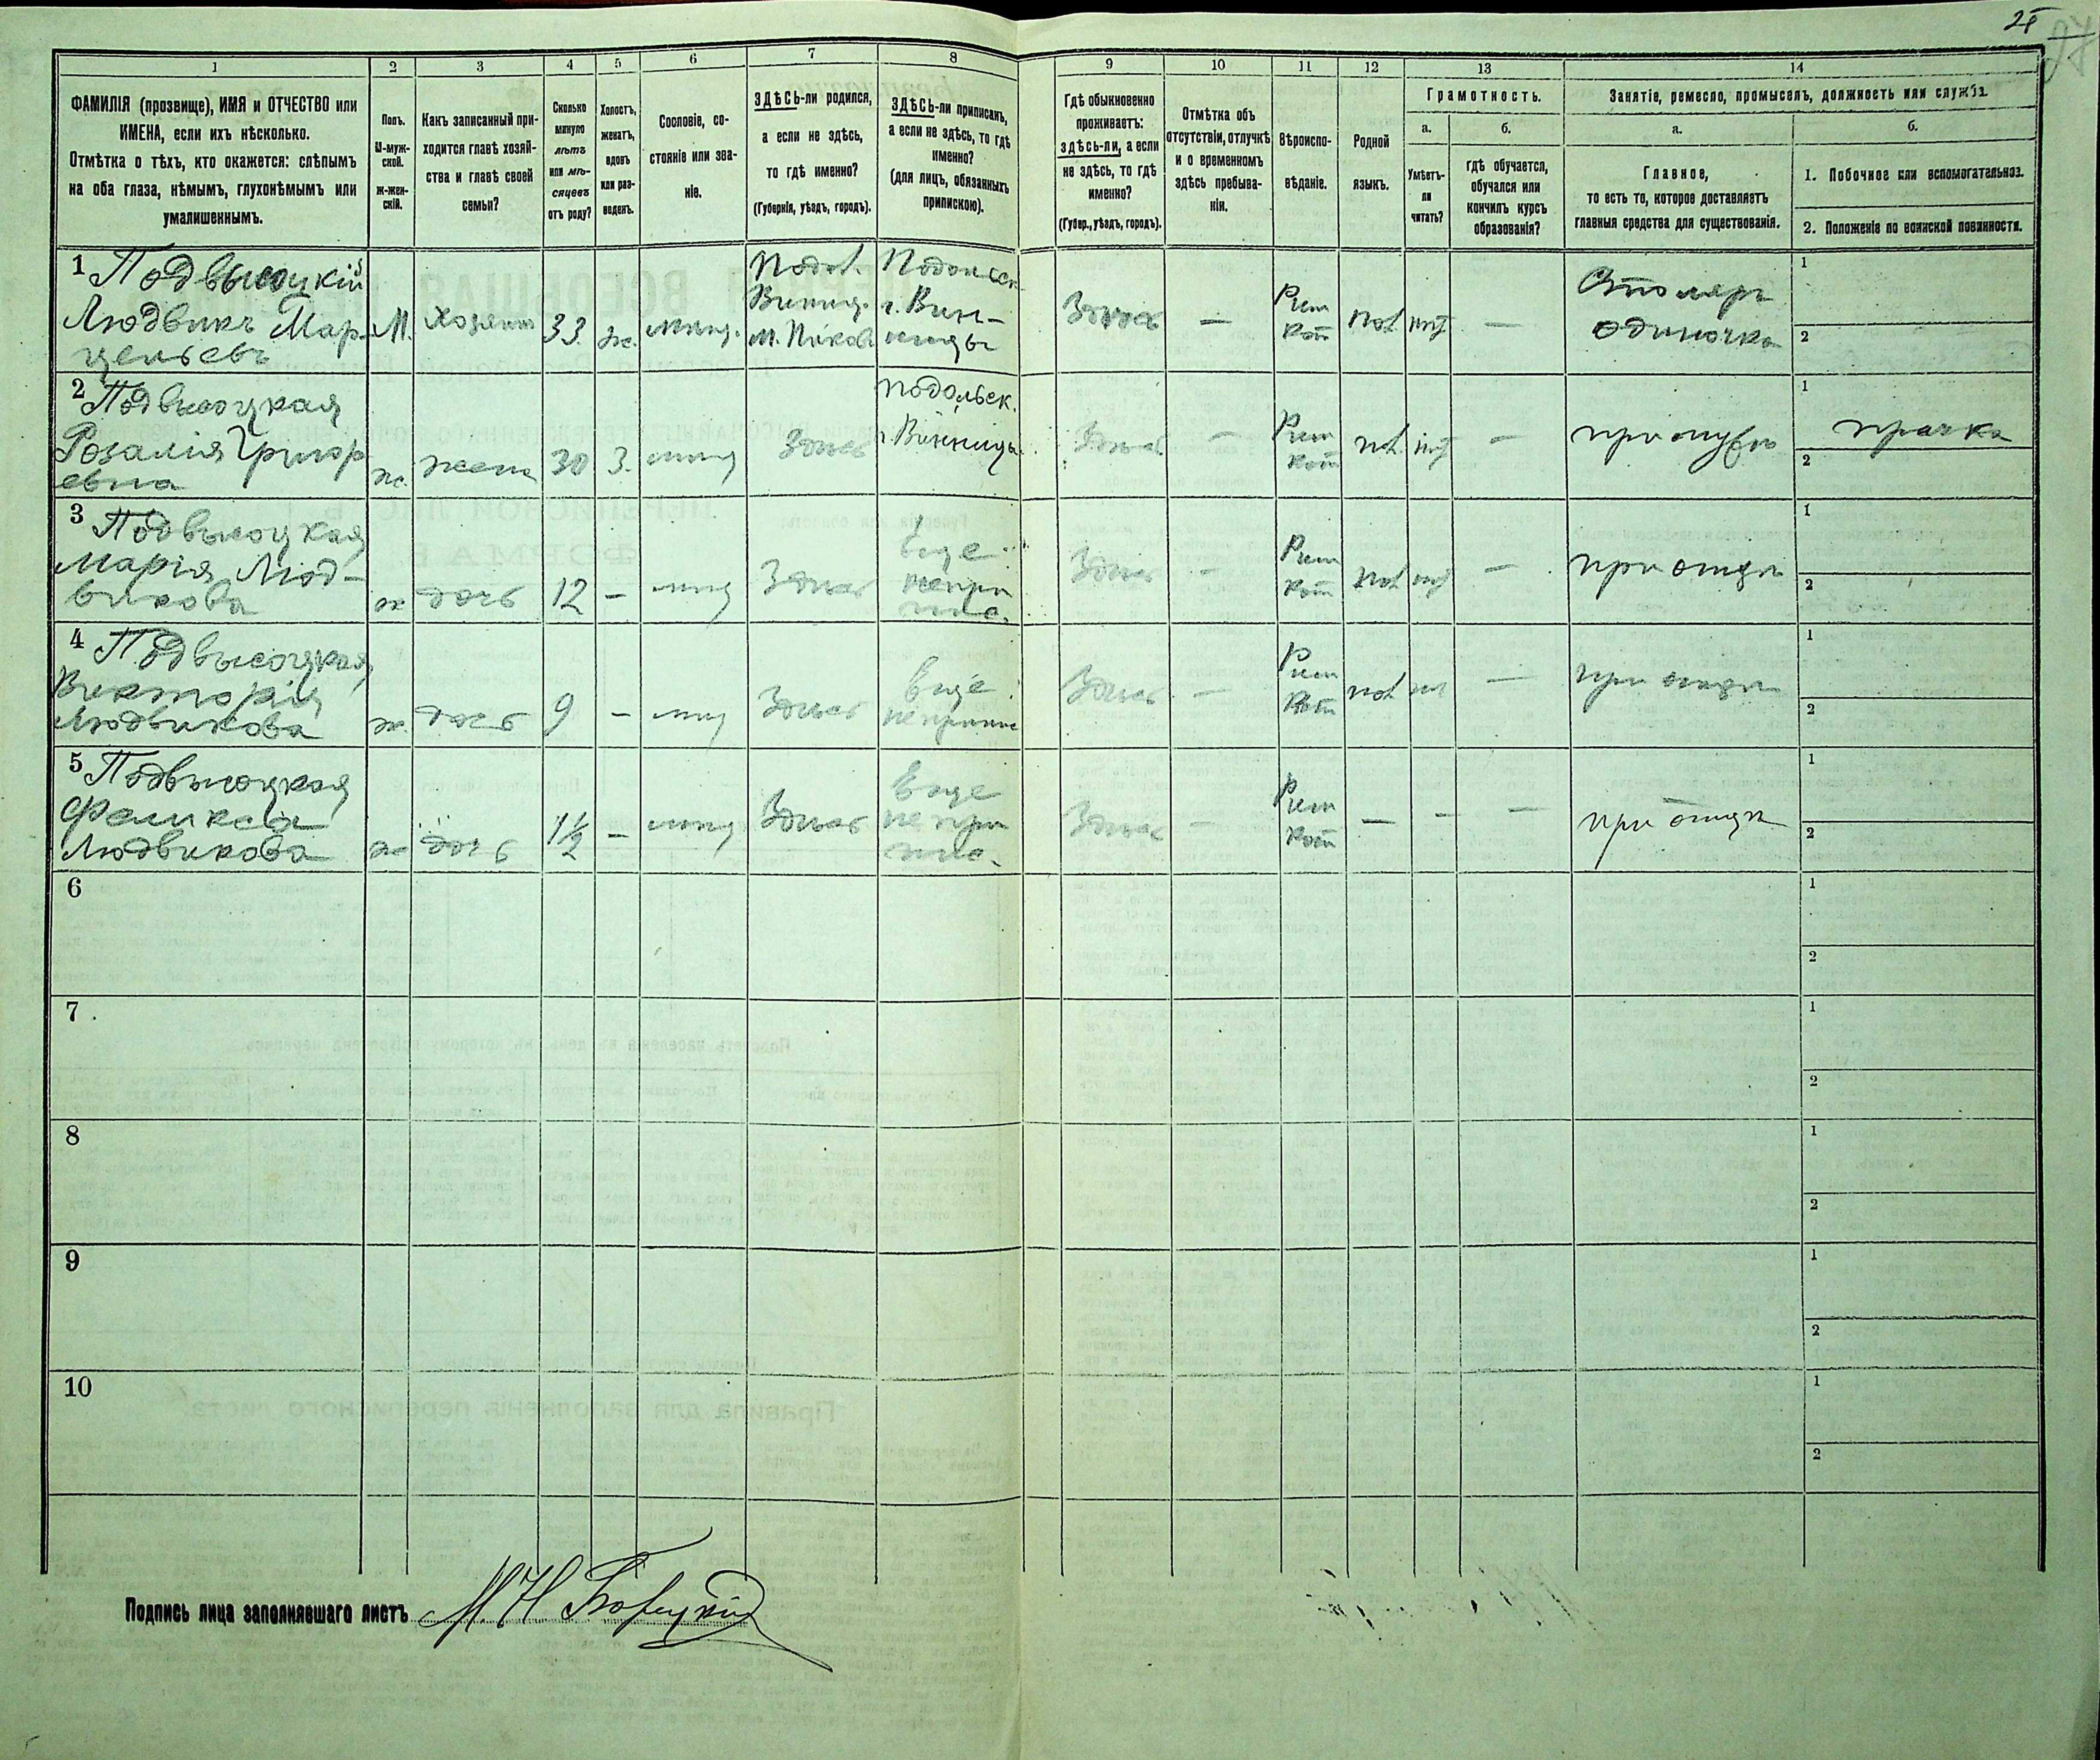 25
1
2
3
4
5
6
7
8
9
10
11
12
13
14
ФАМИЛІЯ (прозвище), ИМЯ и ОТЧЕСТВО или
ИМЕНА, если ихъ нѣсколько.
Отмѣтка о тѣхъ, кто окажется: слѣпымъ
на оба глаза, нѣмымъ, глухонѣмымъ или
умалишеннымъ.
Полъ.
М-муж-
ской.
ж-жен-
скій.
Какъ записанный при-
ходится главѣ хозяй-
ства и главѣ своей
семьи?
Сколько
минуло
лѣтъ
или мѣ-
сяцевъ
отъ роду?
Холостъ,
женатъ,
вдовъ
или раз-
веденъ.
Сословіе, со-
стояніе или зва-
ніе.
ЗДѢСЬ-ли родился,
а если не здѣсь,
то гдѣ именно?
(Губернія, уѣздъ, городъ).
ЗДѢСЬ-ли приписанъ,
а если не здѣсь, то гдѣ
именно?
(для лицъ, обязанныхъ
припискою).
Гдѣ обыкновенно
проживаетъ:
здѣсь-ли, а если
не здѣсь, то гдѣ
именно?
(Губер., уѣздъ, городъ).
Отмѣтка объ
отсутствіи, отлучкѣ
и о временномъ
здѣсь пребыва-
ніи.
Вѣроиспо-
вѣданіе.
Родной
языкъ.
Грамотность.
а.
Умѣетъ-
ли
читать?
б.
гдѣ обучается,
обучался или
кончилъ курсъ
образованія?
Занятіе, ремесло, промыселъ, должность или служба.
а.
Главное,
то есть то, которое доставляетъ
главныя средства для существованія.
б.
1. Побочное или вспомогательное.
2. Положеніе по воинской повинности.
1 Подвысоцкій
Людвикъ Мар-
цельевъ
М.
хозяинъ
33
ж.
мѣщ.
Подол.
Винниц.
м. Пиковъ
Подольск.
г. Вин-
ницы
Здѣсь
—
Рим
кат
пол
—
Столяръ
одиночка
1
2
2 Подвысоцкая
Розалія Григор
евна
ж.
жена
30
З.
мѣщ
Здѣсь
Подольск.
г. Винницы
Здѣсь
—
Рим
кат
пол
—
при мужѣ
1
прачка
2
3 Подвысоцкая
Марія Люд-
викова
ж
дочь
12
—
мѣщ
Здѣсь
Еще
непри
пис.
Здѣсь
—
Рим
кат
пол
—
при отцѣ
1
2
4 Подвысоцкая
Викторія
Людвикова
ж.
дочь
9
—
мѣщ
Здѣсь
Еще
неприпис
Здѣсь
—
Рим
кат
пол
—
при отцѣ
1
2
5 Подвысоцкая
Феликса
Людвикова
ж
дочь
1½
—
мѣщ
Здѣсь
Еще
не при
пис.
Здѣсь
—
Рим
кат
—
—
—
при отцѣ
1
2
6
1
2
7
1
2
8
1
2
9
1
2
10
1
2
Подпись лица заполнявшаго листъ М. Н.